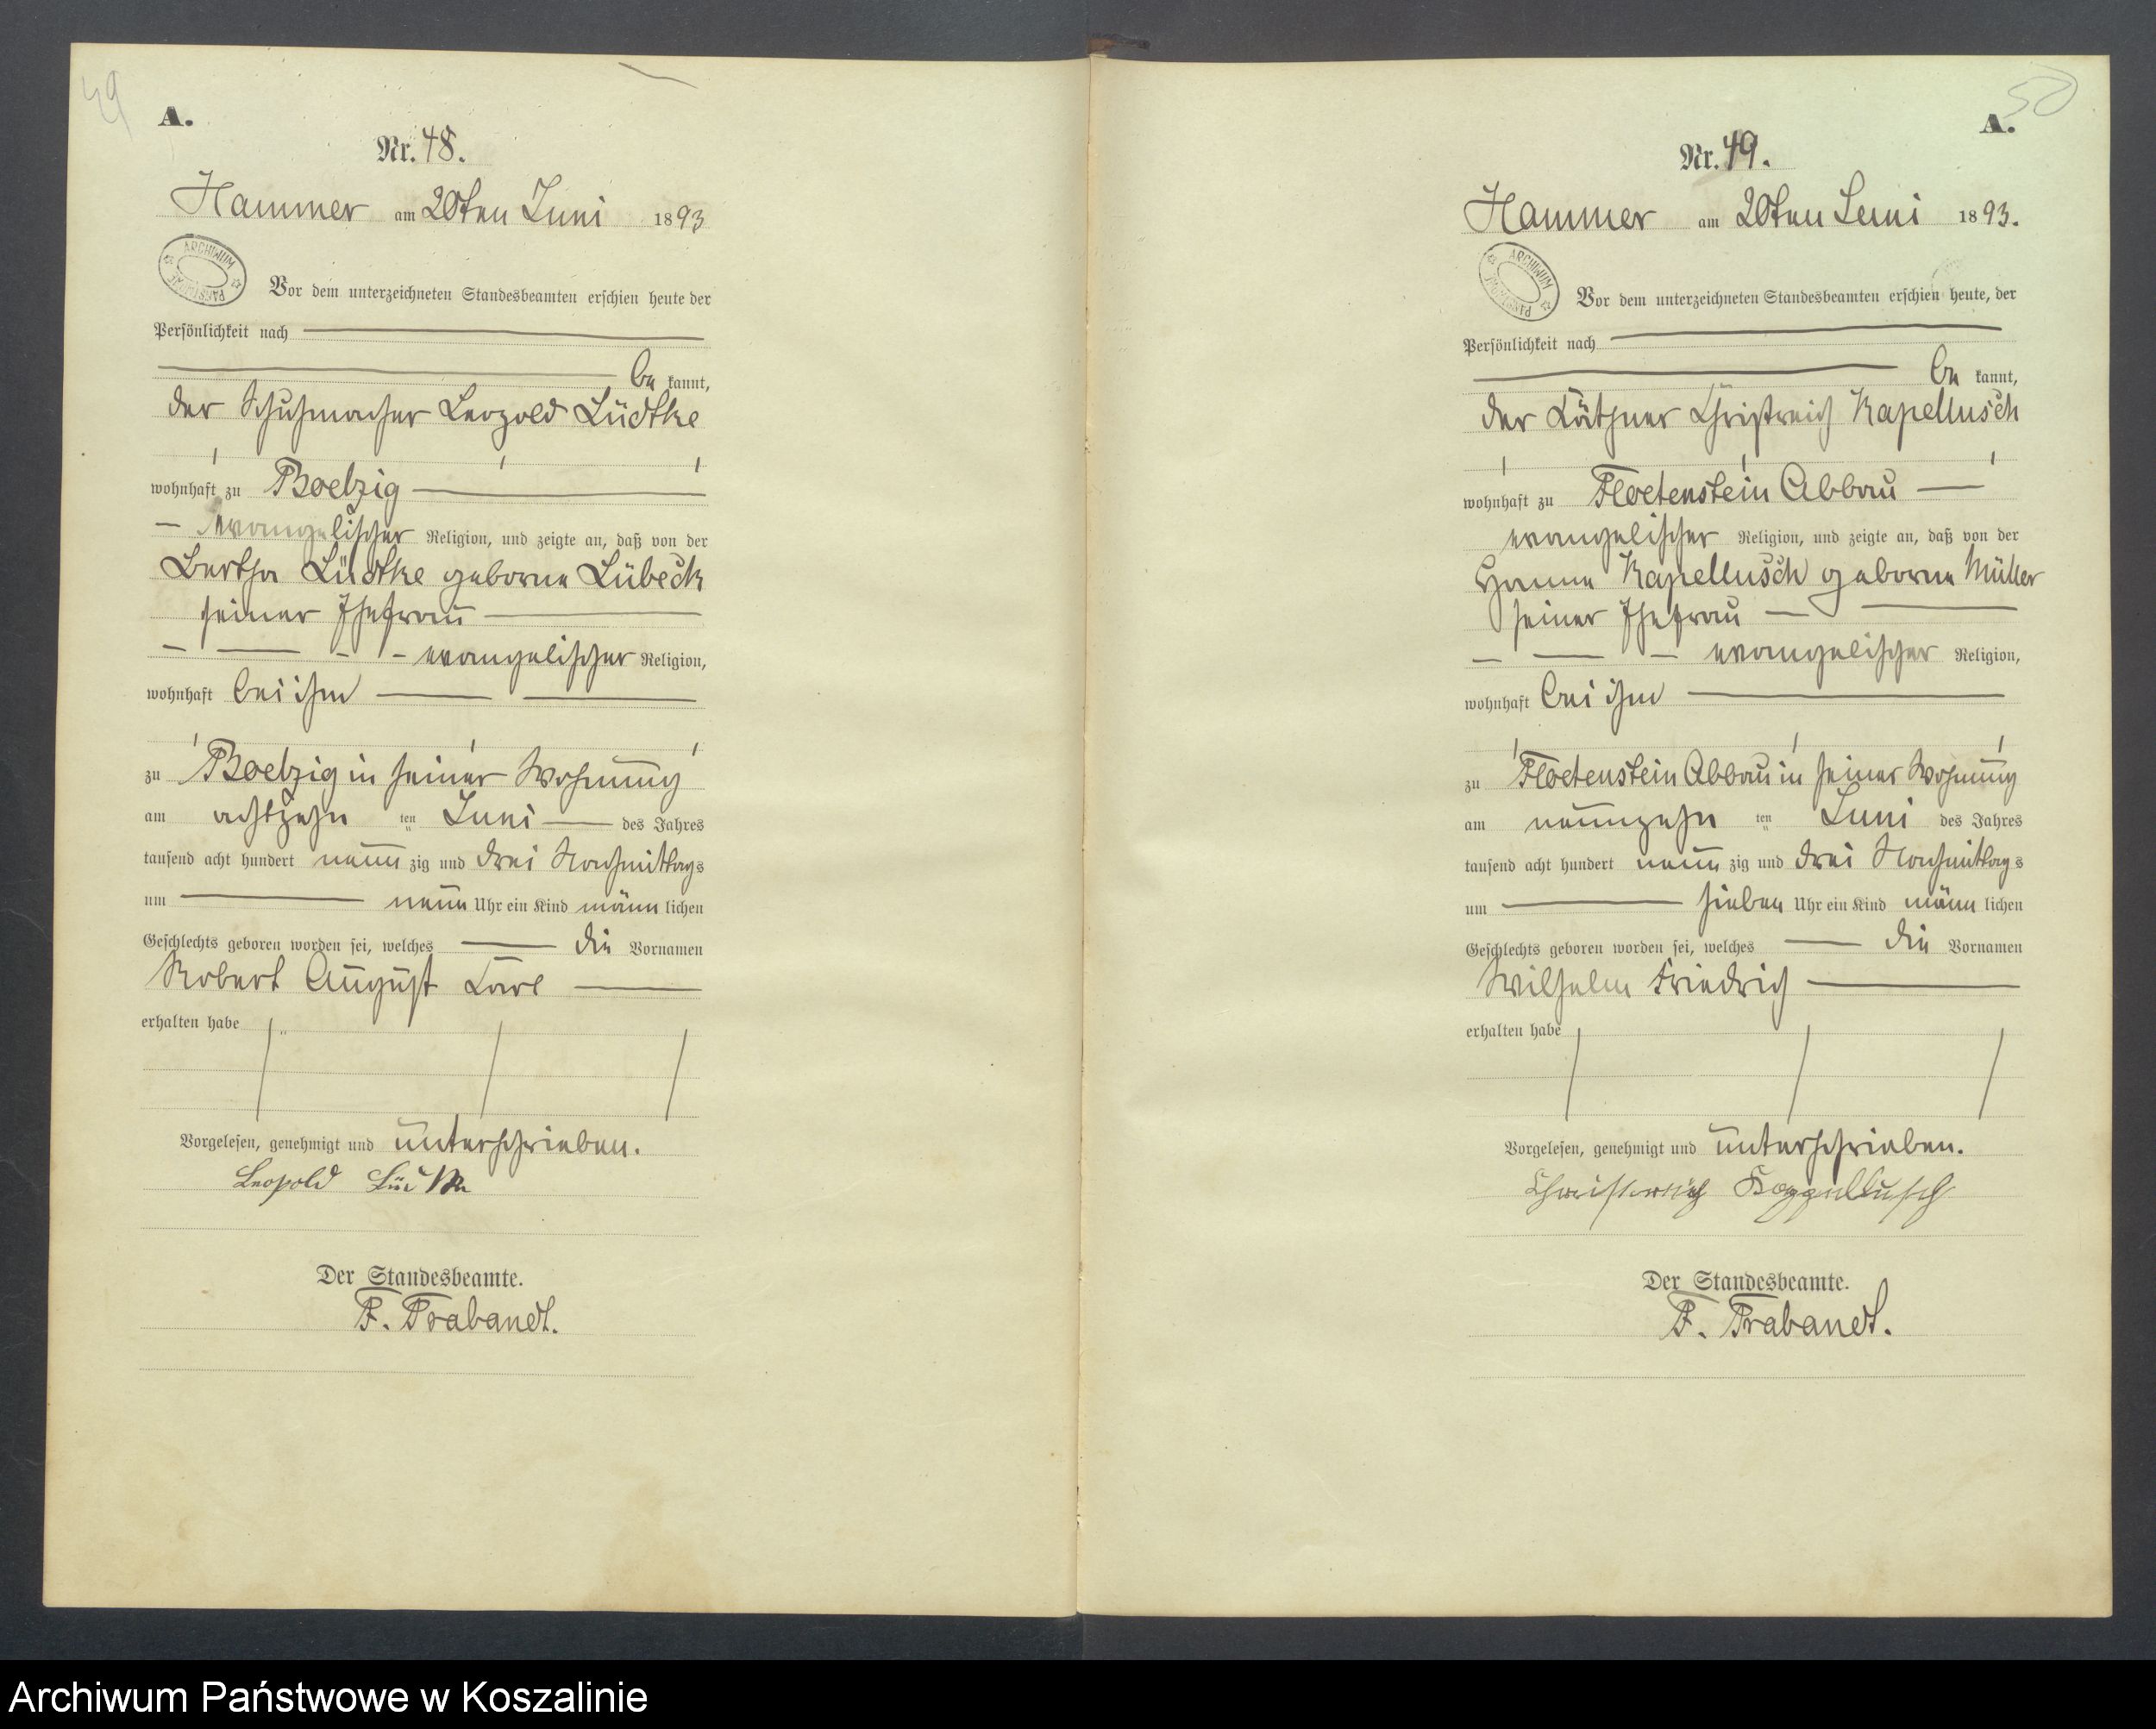 49
A.
Nr. 48.
Hammer am 20ten Juni 1893
ARCHIWUM PAŃSTWOWE
Vor dem unterzeichneten Standesbeamten erschien heute der
Persönlichkeit nach
be kannt,
der Schuhmacher Leopold Lüdtke
wohnhaft zu Boelzig
evangelischer Religion, und zeigte an, daß von der
Bertha Lüdtke geborne Lübeck
seiner Ehefrau
evangelischer Religion,
wohnhaft bei ihm
zu Boelzig in seiner Wohnung
am achtzehn ten Juni des Jahres
tausend acht hundert neun zig und drei Nachmittags
um neun Uhr ein Kind männ lichen
Geschlechts geboren worden sei, welches die Vornamen
Robert August Carl
erhalten habe
Vorgelesen, genehmigt und unterschrieben.
Leopold Lüdtke
Der Standesbeamte.
F. Trabandt.
50
A.
Nr. 49.
Hammer am 20ten Juni 1893.
ARCHIWUM PAŃSTWOWE
Vor dem unterzeichneten Standesbeamten erschien heute, der
Persönlichkeit nach
be kannt,
der Käthner Christreich Kapellusch
wohnhaft zu Floetenstein Abbau
evangelischer Religion, und zeigte an, daß von der
Hanne Kapellusch geborne Müller
seiner Ehefrau
evangelischer Religion,
wohnhaft bei ihm
zu Floetenstein Abbau in seiner Wohnung
am neunzehn ten Juni des Jahres
tausend acht hundert neun zig und drei Nachmittags
um sieben Uhr ein Kind männ lichen
Geschlechts geboren worden sei, welches die Vornamen
Wilhelm Friedrich
erhalten habe
Vorgelesen, genehmigt und unterschrieben.
Christreich Kappellusch
Der Standesbeamte.
F. Trabandt.
Archiwum Państwowe w Koszalinie